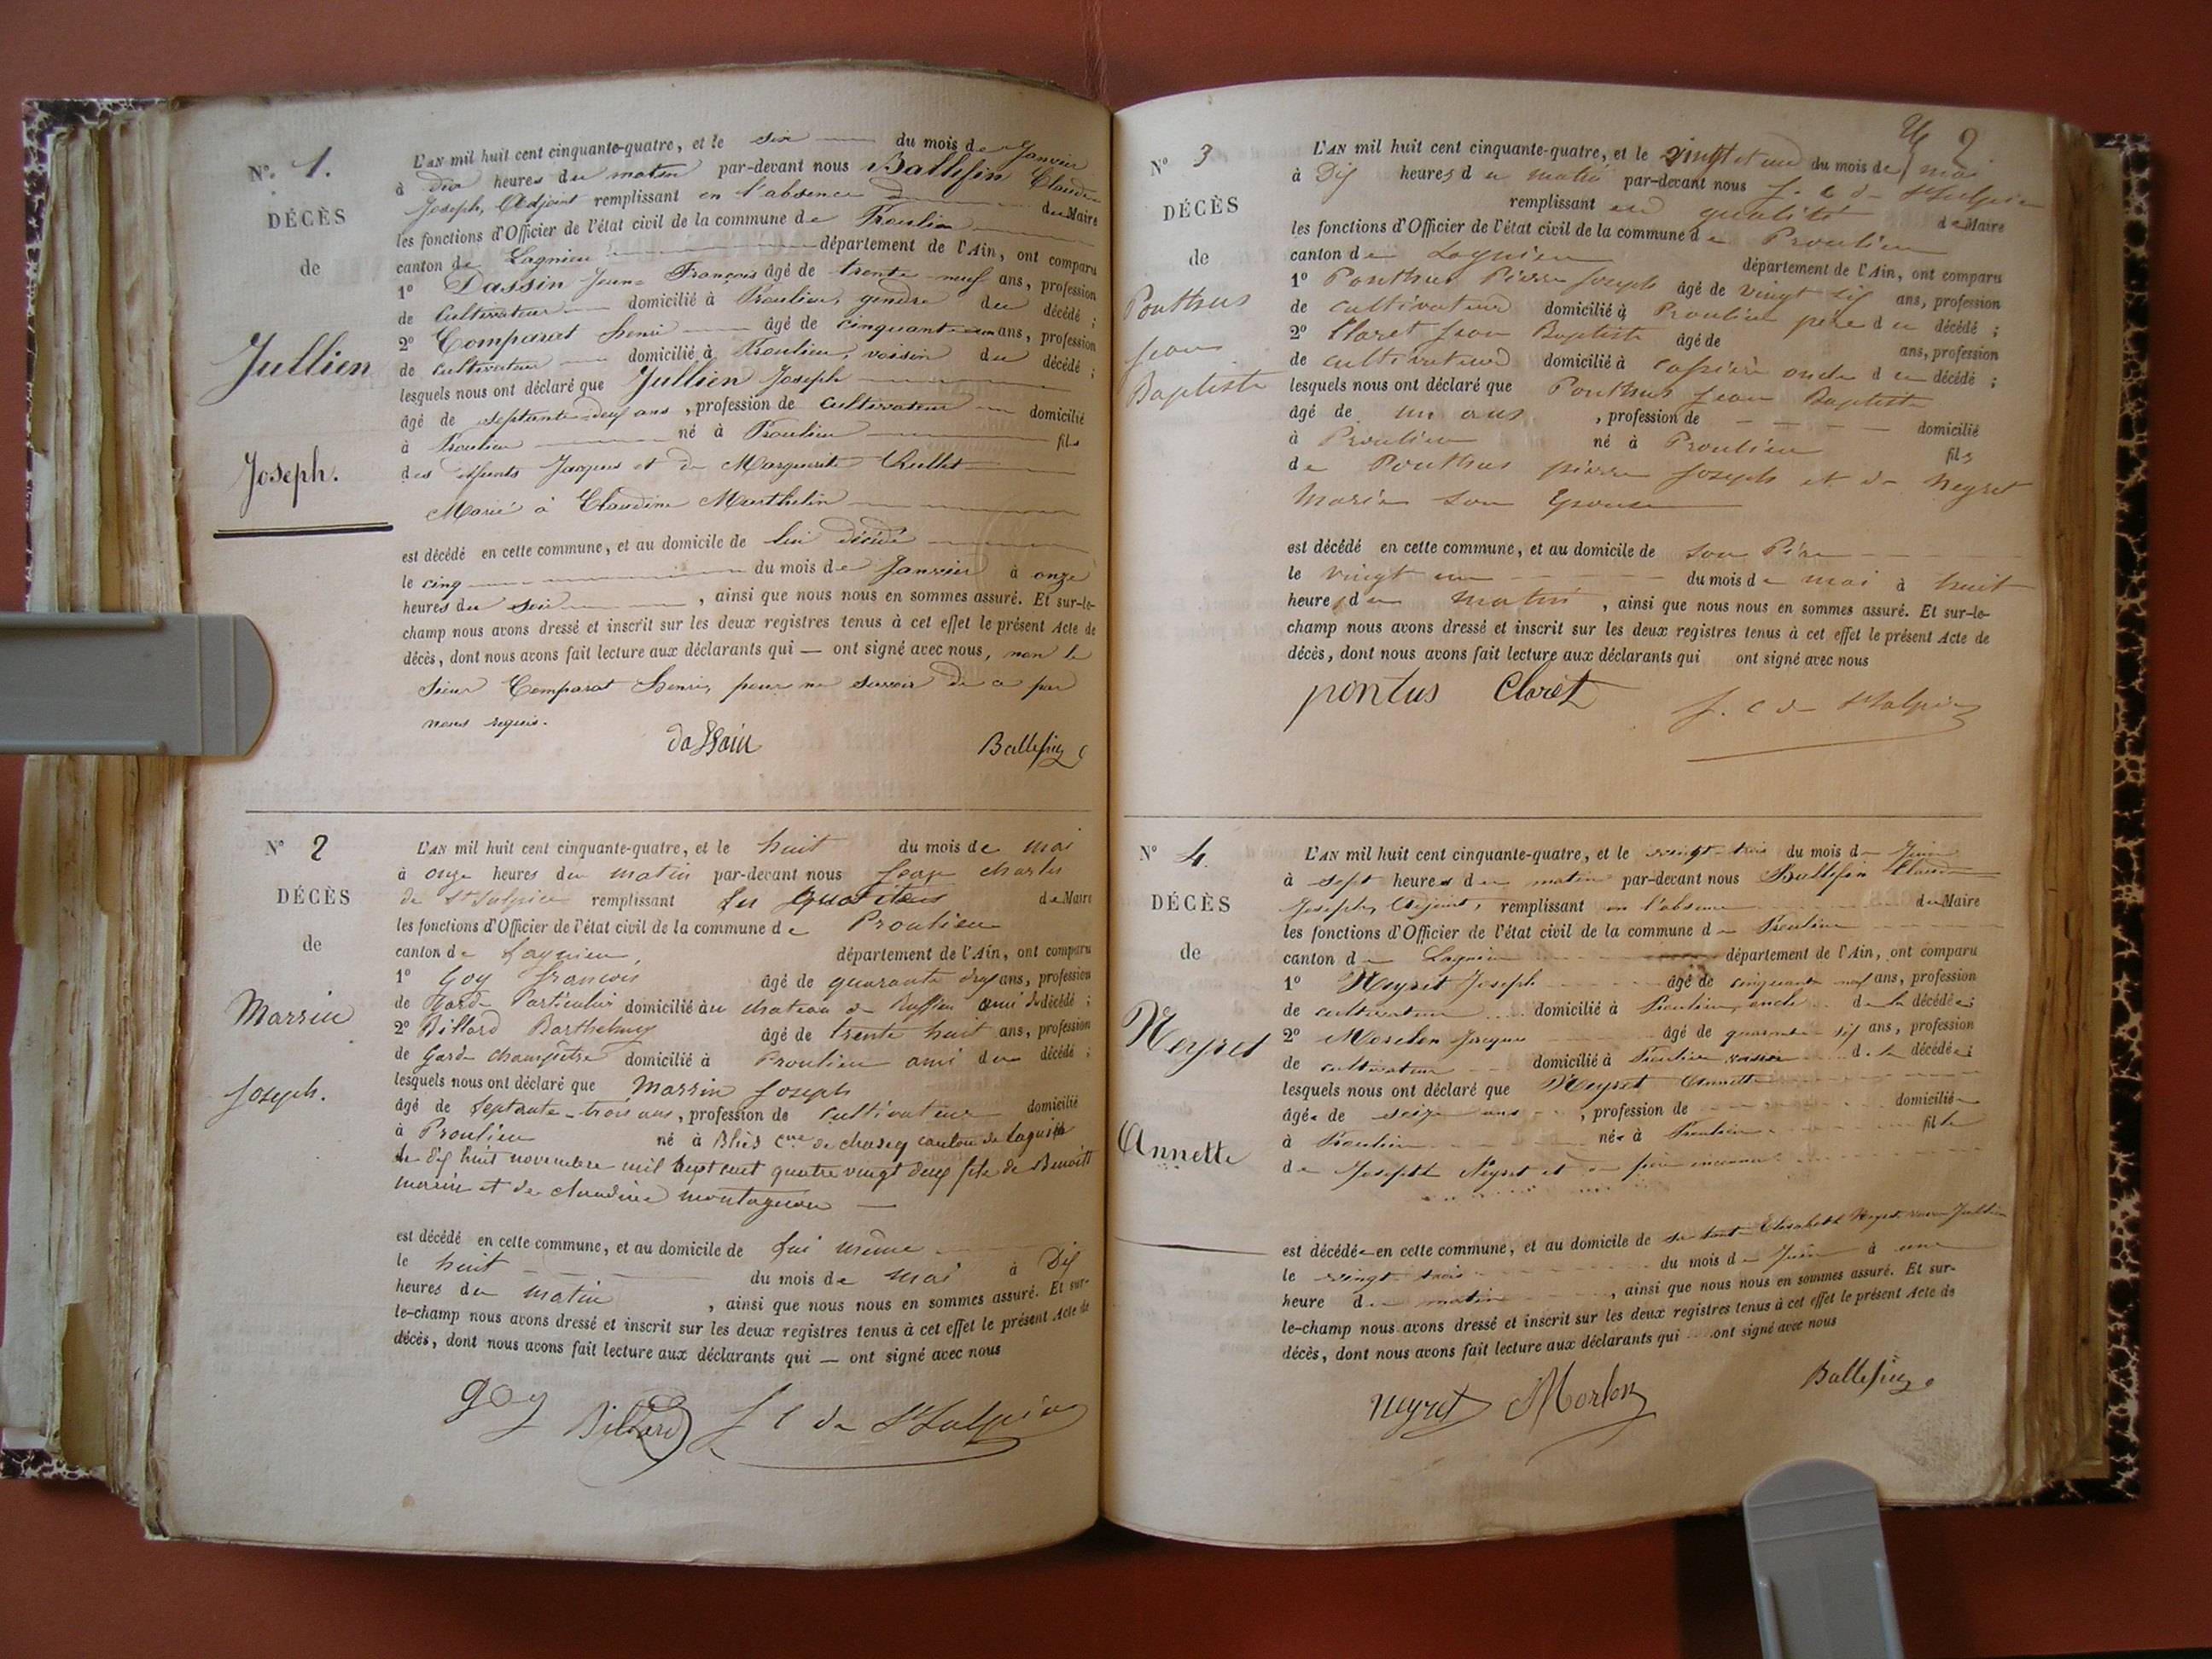 N° 1.
DÉCÈS
de
Jullien
Joseph.
L'AN mil huit cent cinquante-quatre, et le six du mois de Janvier
à dix heures du matin par-devant nous Ballefin Claude
Joseph, Adjoint remplissant en l'absence du Maire
les fonctions d'Officier de l'état civil de la commune de Proulieu
canton de Lagnieu département de l'Ain, ont comparu
1° Dassin Jean François âgé de trente neuf ans, profession
de Cultivateur domicilié à Proulieu, gendre du décédé ;
2° Comparat henri âgé de cinquante un ans, profession
de cultivateur domicilié à Proulieu, voisin du décédé ;
lesquels nous ont déclaré que Jullien Joseph
âgé de septante-deux ans, profession de Cultivateur domicilié
à Proulieu né à Proulieu fils
des défunts Jacques et de Marguerite Rullet
Marié à Claudine Marthelin
est décédé en cette commune, et au domicile de lui décédé
le cinq du mois de Janvier à onze
heures du soir, ainsi que nous nous en sommes assuré. Et sur-le-
champ nous avons dressé et inscrit sur les deux registres tenus à cet effet le présent Acte de
décès, dont nous avons fait lecture aux déclarants qui — ont signé avec nous, non le
sieur Comparat henri, pour ne savoir de ce par
nous requis.
dassain Ballefin
N° 2
DÉCÈS
de
Marrin
Joseph.
L'AN mil huit cent cinquante-quatre, et le huit du mois de mai
à onze heures du matin par-devant nous Jean charles
de St Sulpice remplissant les quatités de Maire
les fonctions d'Officier de l'état civil de la commune de Proulieu
canton de Lagnieu, département de l'Ain, ont comparu
1° Goy francois âgé de quarante deux ans, profession
de Garde Particulier domicilié au chateau de Ruffieu ami du décédé ;
2° Billard Barthelemy âgé de trente huit ans, profession
de Garde champêtre domicilié à Proulieu ami du décédé ;
lesquels nous ont déclaré que Marrin Joseph
âgé de Septante-trois ans, profession de Cultivateur domicilié
à Proulieu né à Bliès Cne de chazey canton de Lagnieu
le dix huit novembre mil sept cent quatre vingt deux fils de Benoît
marin et de claudine montagnon
est décédé en cette commune, et au domicile de lui même
le huit du mois de mai à Dix
heures du matin, ainsi que nous nous en sommes assuré. Et sur-
le-champ nous avons dressé et inscrit sur les deux registres tenus à cet effet le présent Acte de
décès, dont nous avons fait lecture aux déclarants qui — ont signé avec nous
goy Billard J C de St Sulpice
2
N° 3
DÉCÈS
de
Ponthus
jean
Baptiste
L'AN mil huit cent cinquante-quatre, et le vingt et un du mois de mai
à Dix heures du matin par-devant nous J. C de St Sulpice
remplissant en qualité de Maire
les fonctions d'Officier de l'état civil de la commune de Proulieu
canton de Lagnieu département de l'Ain, ont comparu
1° Ponthus Pierre joseph âgé de vingt six ans, profession
de cultivateur domicilié à Proulieu père du décédé ;
2° Claret jean Baptiste âgé de ans, profession
de cultivateur domicilié à oncle du décédé ;
lesquels nous ont déclaré que Ponthus jean Baptiste
âgé de un ans, profession de domicilié
à Proulieu né à Proulieu fils
de Ponthus pierre joseph et de Neyret
Marie son Epouse
est décédé en cette commune, et au domicile de son Père
le vingt un du mois de mai à huit
heure du matin, ainsi que nous nous en sommes assuré. Et sur-le-
champ nous avons dressé et inscrit sur les deux registres tenus à cet effet le présent Acte de
décès, dont nous avons fait lecture aux déclarants qui ont signé avec nous
pontus Claret J. C de St Sulpice
N° 4.
DÉCÈS
de
Neyret
Annette
L'AN mil huit cent cinquante-quatre, et le vingt-trois du mois de Juin
à sept heures du matin par-devant nous Ballefin Claude
Joseph, Adjoint, remplissant en l'absence du Maire
les fonctions d'Officier de l'état civil de la commune de Proulieu
canton de Lagnieu département de l'Ain, ont comparu
1° Neyret Joseph âgé de cinquante neuf ans, profession
de cultivateur domicilié à Proulieu, oncle de la décédée ;
2° Morelon Jacques âgé de quarante six ans, profession
de cultivateur domicilié à Proulieu, voisin de la décédée ;
lesquels nous ont déclaré que Neyret Annette
âgée de seize ans, profession de domiciliée
à Proulieu née à Proulieu fille
de Josephte Neyret et de père inconnu
est décédée en cette commune, et au domicile de sa tante Elisabeth Neyret veuve Jullien
le vingt trois du mois de Juin à une
heure du matin, ainsi que nous nous en sommes assuré. Et sur-
le-champ nous avons dressé et inscrit sur les deux registres tenus à cet effet le présent Acte de
décès, dont nous avons fait lecture aux déclarants qui ont signé avec nous
neyret Morlon Ballefin